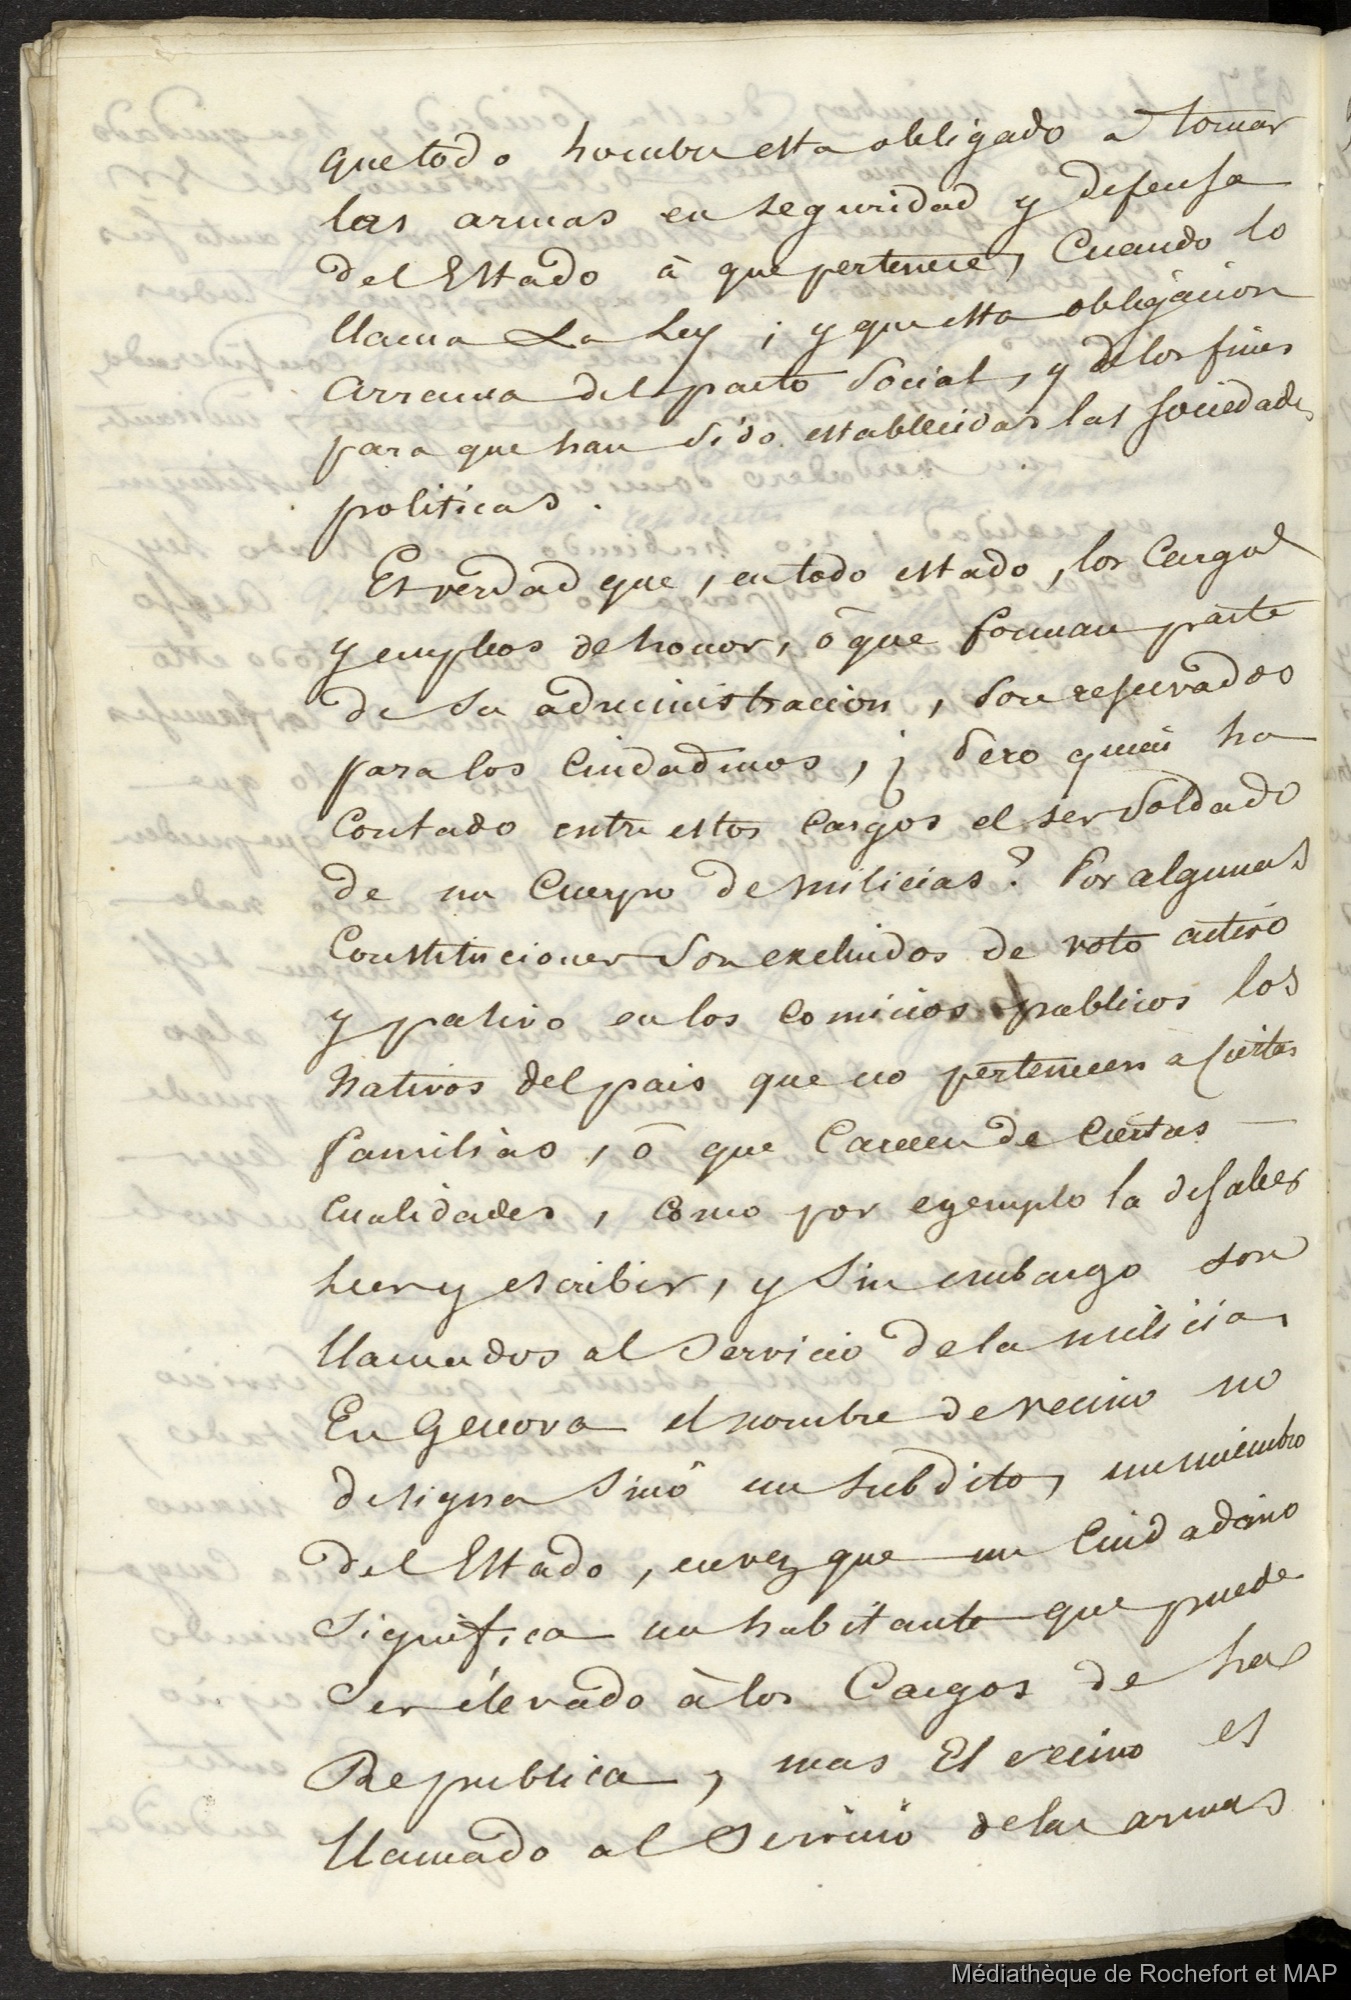 que todo hombre esta obligado a tomar
las armas en seguridad y defensa
del Estado à que pertenece, Cuando lo
llama La Ley ; y que esta obligacion
arranca del pacto Social, y de los fines
para que han sido establecidas las sociedades
politicas.
Es verdad que, en todo estado, los Cargos
y empleos de honor, ó que forman parte
de su administracion, son reservados
para los Ciudadanos, ¿ Pero quien ha
Contado entre estos Cargos el ser Soldado
de un Cuerpo de milicias? Por algunas
Constituciones son excluidos de voto activo
y pasivo en los comicios publicos los
Nativos del pais que no pertenecen a Ciertas
familias, ó que Carecen de Ciertas
Cualidades, como por egemplo la de saber
leer y escribir, y sin embargo son
llamados al servicio de la milicia.
En Genova el nombre de vecino no
designa sinó un subdito, un miembro
del Estado, en vez que un Ciudadano
significa un habitante que puede
ser élevado à los Cargos de la
Republica, mas El vecino es
llamado al Servicio de las armas
Médiathèque de Rochefort et MAP